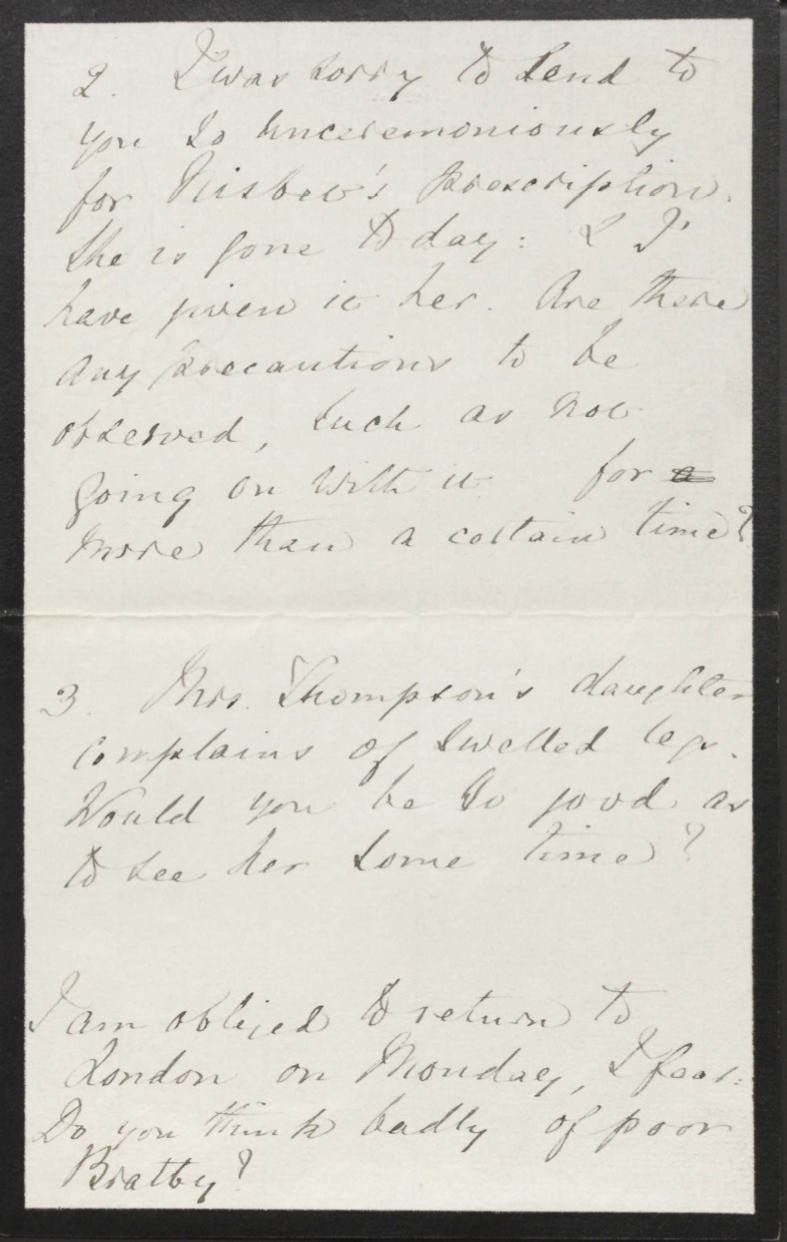 2. I was sorry to send to
you so unceremoniously
for Nisbet's prescription.
She is gone to day: & I
have given it her. Are there
any precautions to be
observed, such as not
going on with it for a
more than a certain time?
3. Mrs. Thompson's daughter
complains of swelled legs.
Would you be so good as
to see her some time?
I am obliged to return to
London on Monday, I fear:
Do you think badly of poor
Bratby?